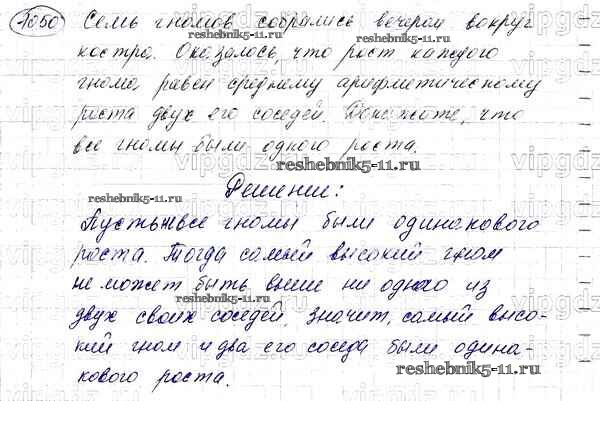 1050 Семь гномов собрались вечером вокруг
костра. Оказалось, что рост каждого
гнома равен среднему арифметическому
роста двух его соседей. Докажите, что
все гномы были одного роста.
reshebnik5-11.ru
Решение:
reshebnik5-11.ru
Пусть не все гномы были одинакового
роста. Тогда самый высокий гном
не может быть выше ни одного из
reshebnik5-11.ru
двух своих соседей, значит, самый высо-
кий гном и два его соседа были одина-
кового роста.
reshebnik5-11.ru